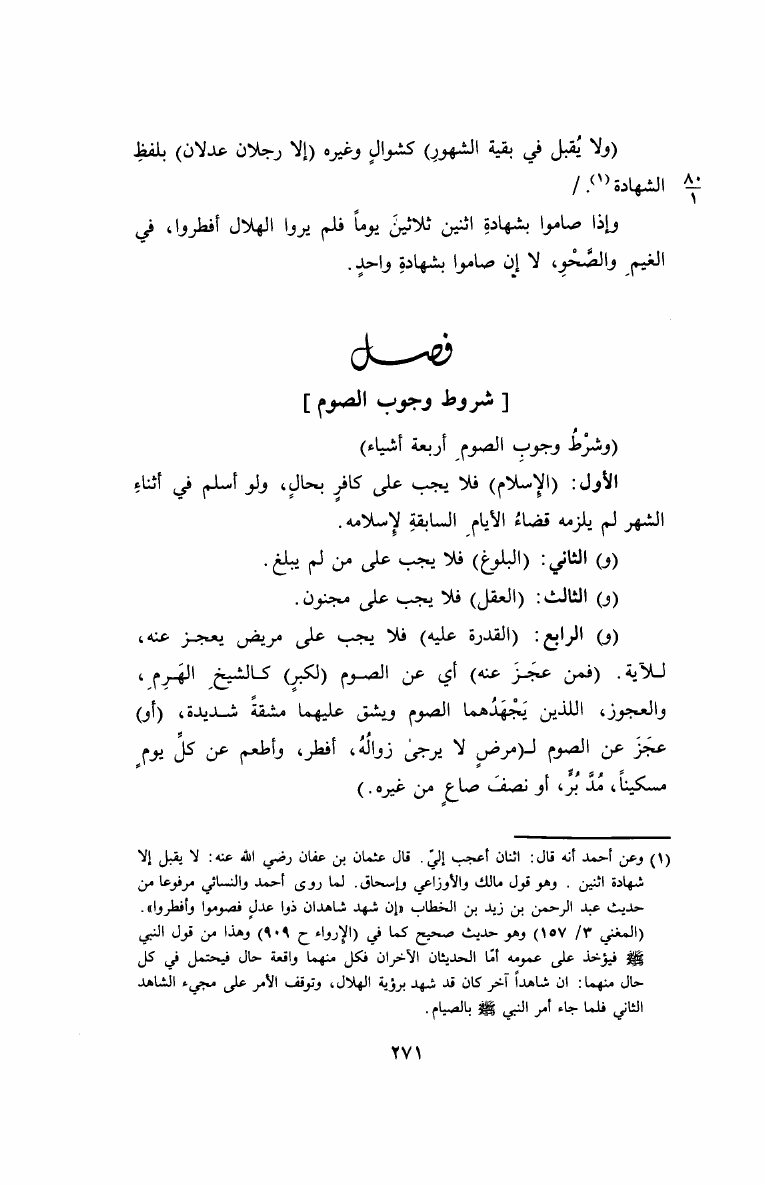 (ولا يُقبل في بقية الشهورِ) كشوالٍ وغيره (إلا رجلان عدلان) بلفظِ
الشهادة(١). /
٨٠
١
وإذا صاموا بشهادةِ اثنين ثلاثينَ يوماً فلم يروا الهلال أفطروا، في
الغيمِ والصَّحْوِ، لا إن صاموا بشهادةِ واحدٍ.
فصل
[ شروط وجوب الصوم ]
(وشرْطُ وجوبِ الصومِ أربعة أشياء)
الأول: (الإسلام) فلا يجب على كافرٍ بحالٍ، ولو أسلم في أثناءِ
الشهر لم يلزمه قضاءُ الأيامِ السابقةِ لإسلامه.
(و) الثاني: (البلوغ) فلا يجب على من لم يبلغ.
(و) الثالث: (العقل) فلا يجب على مجنون.
(و) الرابع: (القدرة عليه) فلا يجب على مريض يعجز عنه،
للآية. (فمن عجَزَ عنه) أي عن الصوم (لكبرٍ) كالشيخِ الهَرِمِ،
والعجوز، اللذين يَجْهَدُهما الصوم ويشق عليهما مشقةً شديدة، (أو)
عجَزَ عن الصوم لـ(مرضٍ لا يرجىٰ زوالُهُ، أفطر، وأطعم عن كلِّ يومٍ
مسكيناً، مُدَّ بُرٍّ، أو نصفَ صاعٍ من غيره.)
(١) وعن أحمد أنه قال: اثنان أعجب إليّ. قال عثمان بن عفان رضي الله عنه: لا يقبل إلا
شهادة اثنين . وهو قول مالك والأوزاعي وإسحاق. لما روى أحمد والنسائي مرفوعا من
حديث عبد الرحمن بن زيد بن الخطاب «إن شهد شاهدان ذوا عدلٍ فصوموا وأفطروا».
(المغني ٣/ ١٥٧) وهو حديث صحيح كما في (الإرواء ح ٩٠٩) وهذا من قول النبي
ﷺ فيؤخذ على عمومه أمّا الحديثان الآخران فكل منهما واقعة حال فيحتمل في كل
حال منهما: ان شاهداً آخر كان قد شهد برؤية الهلال، وتوقف الأمر على مجيء الشاهد
الثاني فلما جاء أمر النبي ﷺ بالصيام.
٢٧١